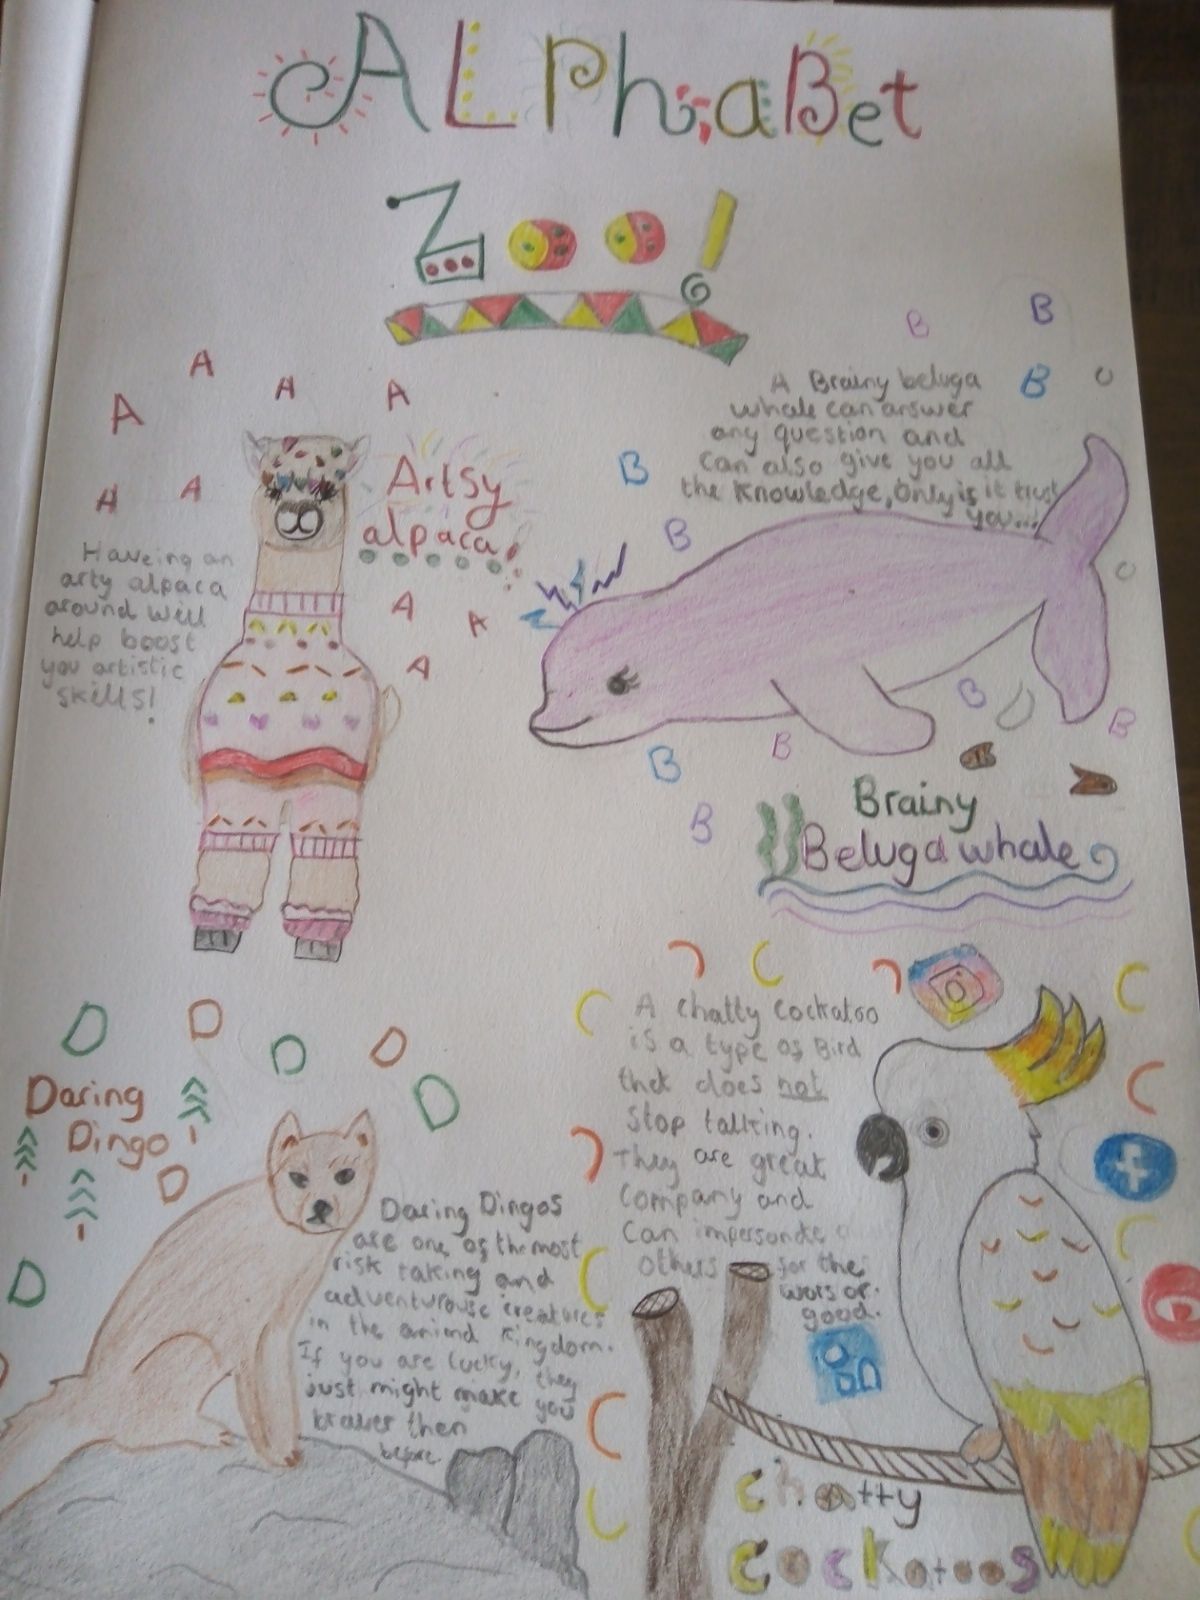 ALPhaBet
Zoo!
A
A
A
A
A
A
Artsy
alpaca!
Haveing an
arty alpaca
around will
help boost
you artistic
skills!
A
A
A
B
B
B
A Brainy beluga
whale can answer
any question and
can also give you all
the knowledge, only is it trust
you...
B
B
B
B
B
B
B
Brainy
Beluga whale
D
D
D
D
D
Daring
Dingo
D
D
Daring Dingos
are one of the most
risk taking and
adventurouse creatures
in the animal kingdom.
If you are lucky, they
just might make you
braver then
before
C
C
C
A chatty cockatoo
is a type of Bird
that does not
stop talking.
They are great
company and
can impersonate
others for the
wors or
good.
C
C
f
C
C
C
C
Chatty
Cockatoos